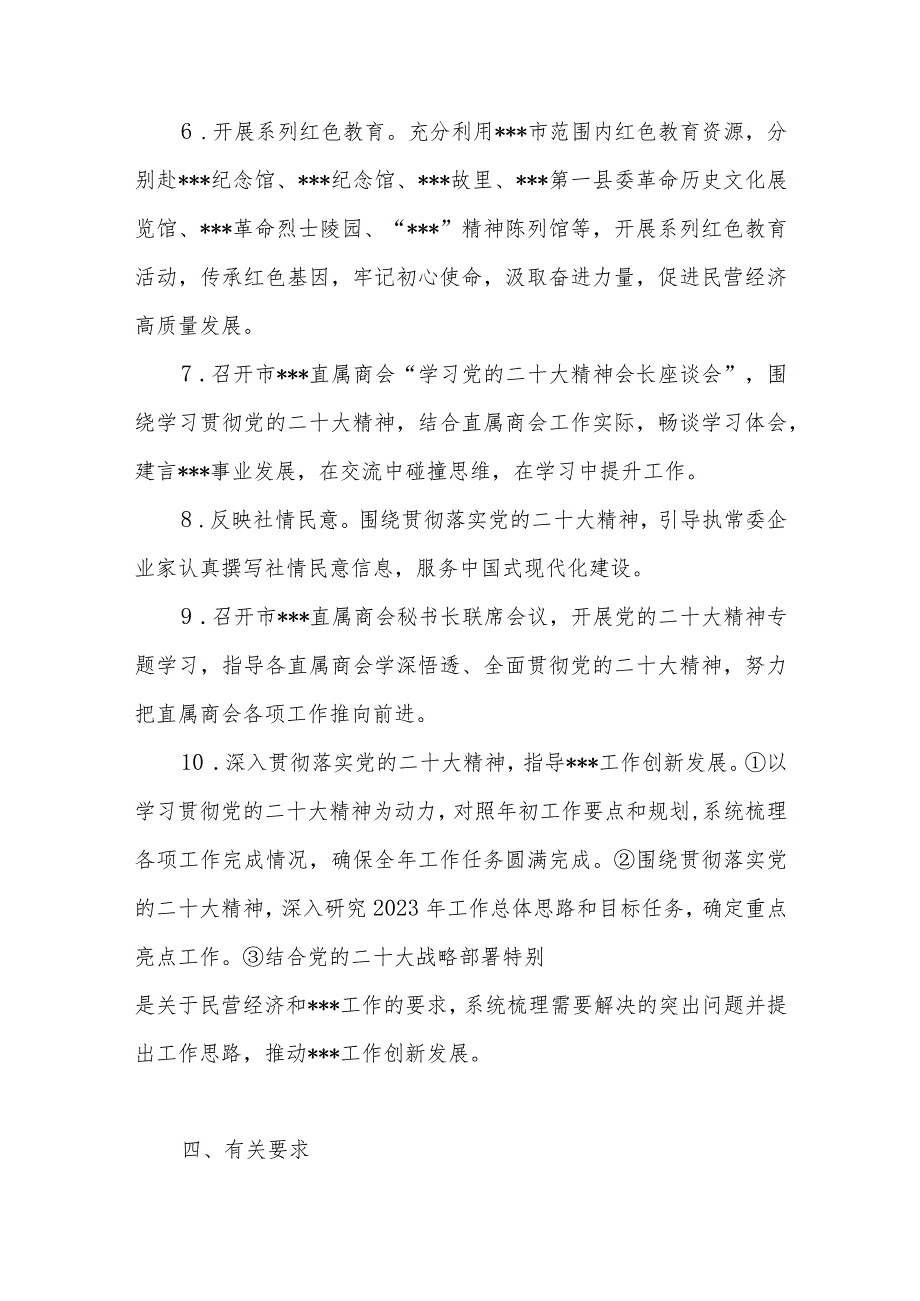 6.开展系列红色教育。充分利用***市范围内红色教育资源，分
别赴***纪念馆、***纪念馆、***故里、***第一县委革命历史文化展
览馆、***革命烈士陵园、“***”精神陈列馆等，开展系列红色教育
活动，传承红色基因，牢记初心使命，汲取奋进力量，促进民营经济
高质量发展。
7.召开市***直属商会“学习党的二十大精神会长座谈会”，围
绕学习贯彻党的二十大精神，结合直属商会工作实际，畅谈学习体会，
建言***事业发展，在交流中碰撞思维，在学习中提升工作。
8.反映社情民意。围绕贯彻落实党的二十大精神，引导执常委企
业家认真撰写社情民意信息，服务中国式现代化建设。
9.召开市***直属商会秘书长联席会议，开展党的二十大精神专
题学习，指导各直属商会学深悟透、全面贯彻党的二十大精神，努力
把直属商会各项工作推向前进。
10.深入贯彻落实党的二十大精神，指导***工作创新发展。①以
学习贯彻党的二十大精神为动力，对照年初工作要点和规划,系统梳理
各项工作完成情况，确保全年工作任务圆满完成。②围绕贯彻落实党
的二十大精神，深入研究2023年工作总体思路和目标任务，确定重点
亮点工作。③结合党的二十大战略部署特别
是关于民营经济和***工作的要求，系统梳理需要解决的突出问题并提
出工作思路，推动***工作创新发展。
四、有关要求